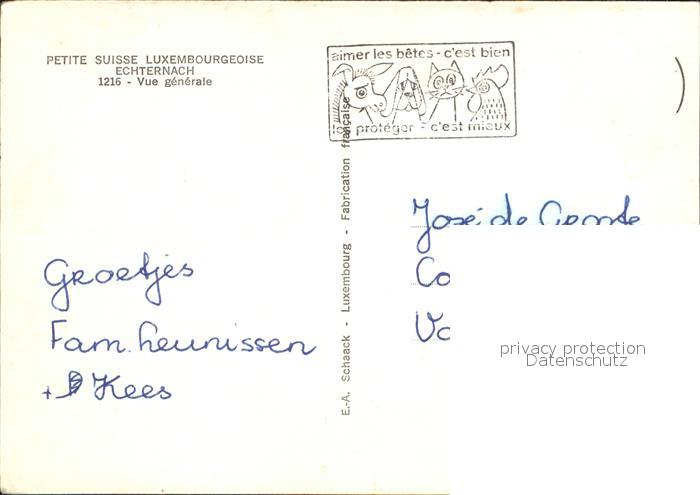 PETITE SUISSE LUXEMBOURGEOISE
ECHTERNACH
1216 - Vue générale
aimer les bêtes - c'est bien
les protéger - c'est mieux
E.-A. Schaack - Luxembourg - Fabrication française
José de
Co
Va
Groetjes
Fam. Leunissen
+ Kees
privacy protection
Datenschutz